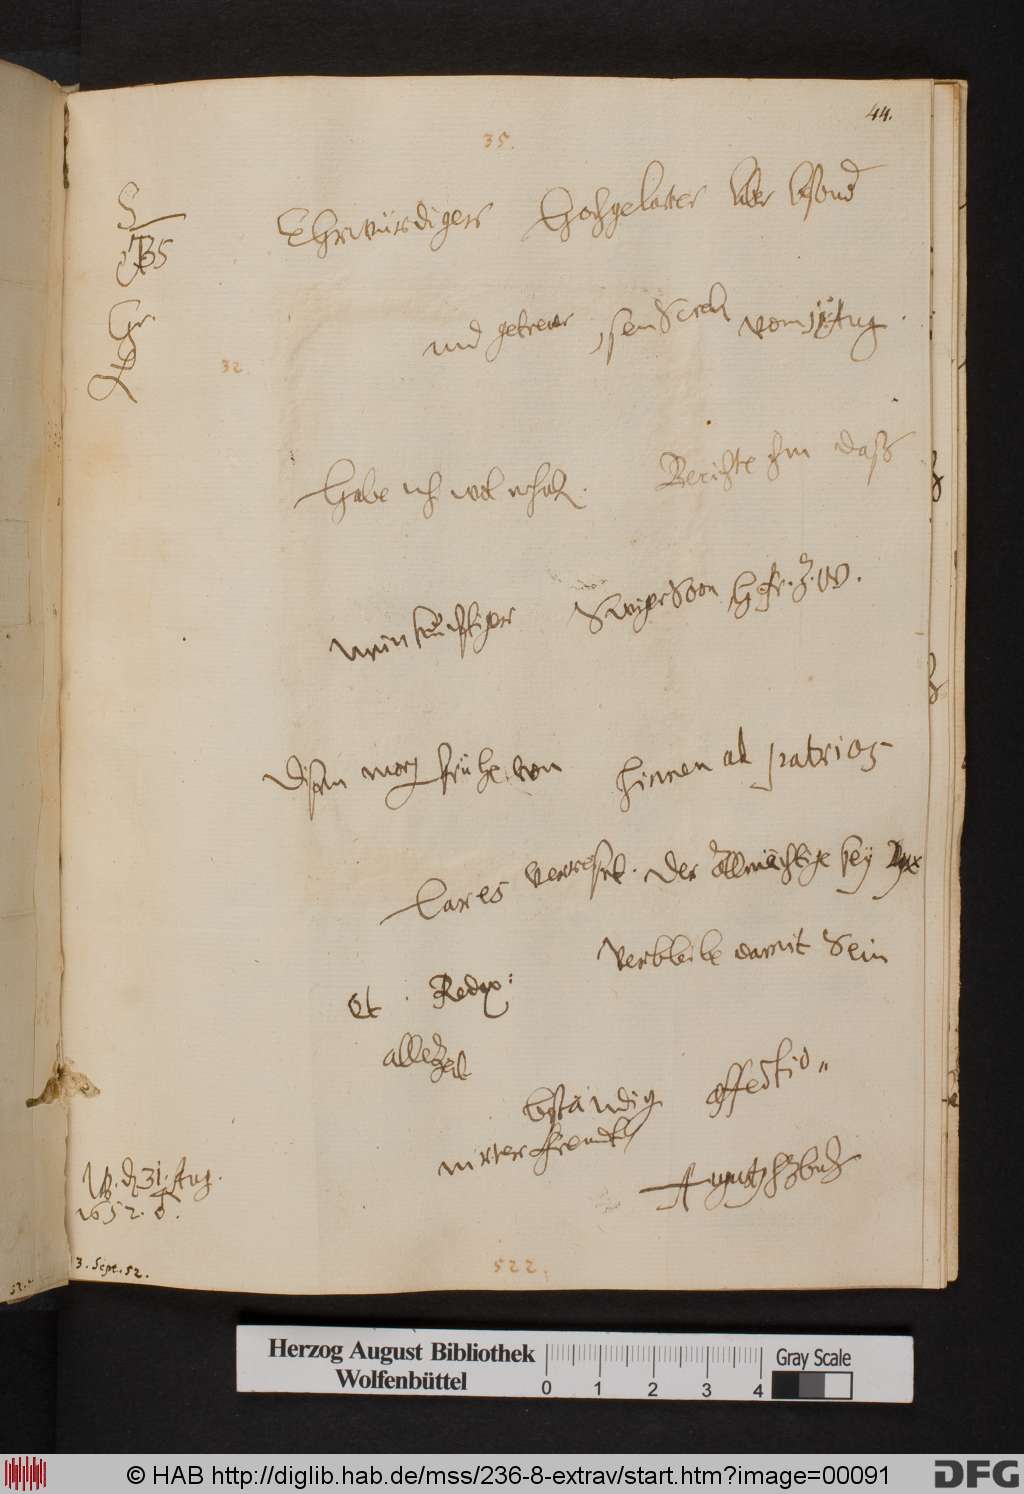 44.
35.
Ehrwürdiger Hochgelarter lieber besond
und getreuer, sein Schreib vom Aug.
32.
Habe ich wol erhalt. Berichte ihm daß
mein künftiger Swigersoon H. Fr. z. W.
disen morg frühe von hinnen ad patrios
Lares verreiset. Der Allmächtige sey Dux
et Redux: Verbleibe damit Sein
allezeit
bständig affectio„
nirter Freundt
Augustus HzbuL
W. d 31. Aug.
1652. ♂.
3. Sept. 52.
522.
Herzog August Bibliothek
Wolfenbüttel
0 1 2 3 4
Gray Scale
© HAB http://diglib.hab.de/mss/236-8-extrav/start.htm?image=00091
DFG